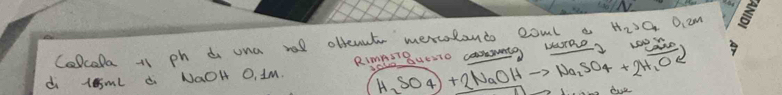 Calcola il ph di una sol ottenuta mescolando 20mL di H₂SO₄ 0,2M
di 15mL di NaOH 0,1M.
RIMASTO SOLO QUESTO
H₂SO₄ + 2NaOH → Na₂SO₄ + 2H₂O
due
ANIDI